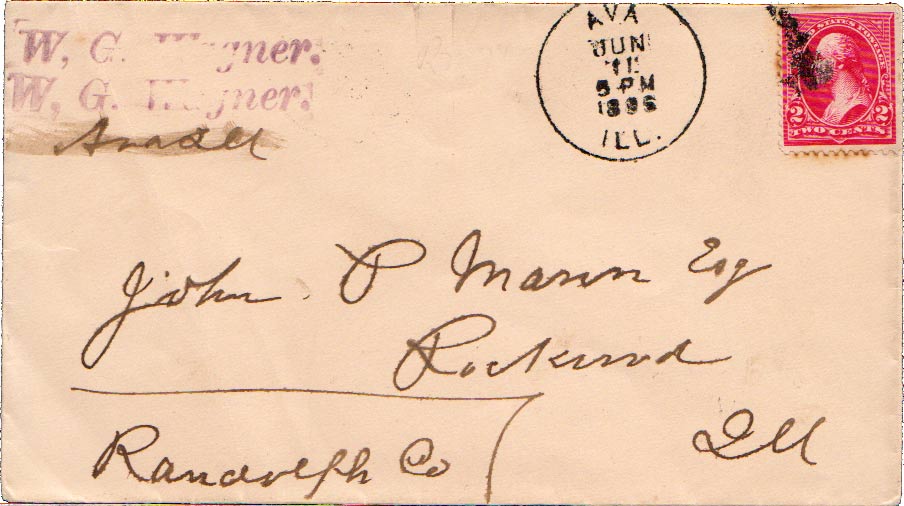 W, G. Wagner.
W, G. Wagner.
Ava Ill
AVA
JUN
11
5 PM
1896
ILL.
UNITED STATES POSTAGE
2 2
TWO CENTS.
John P Mann Esq
Rockwood
Randolph Co
Ill